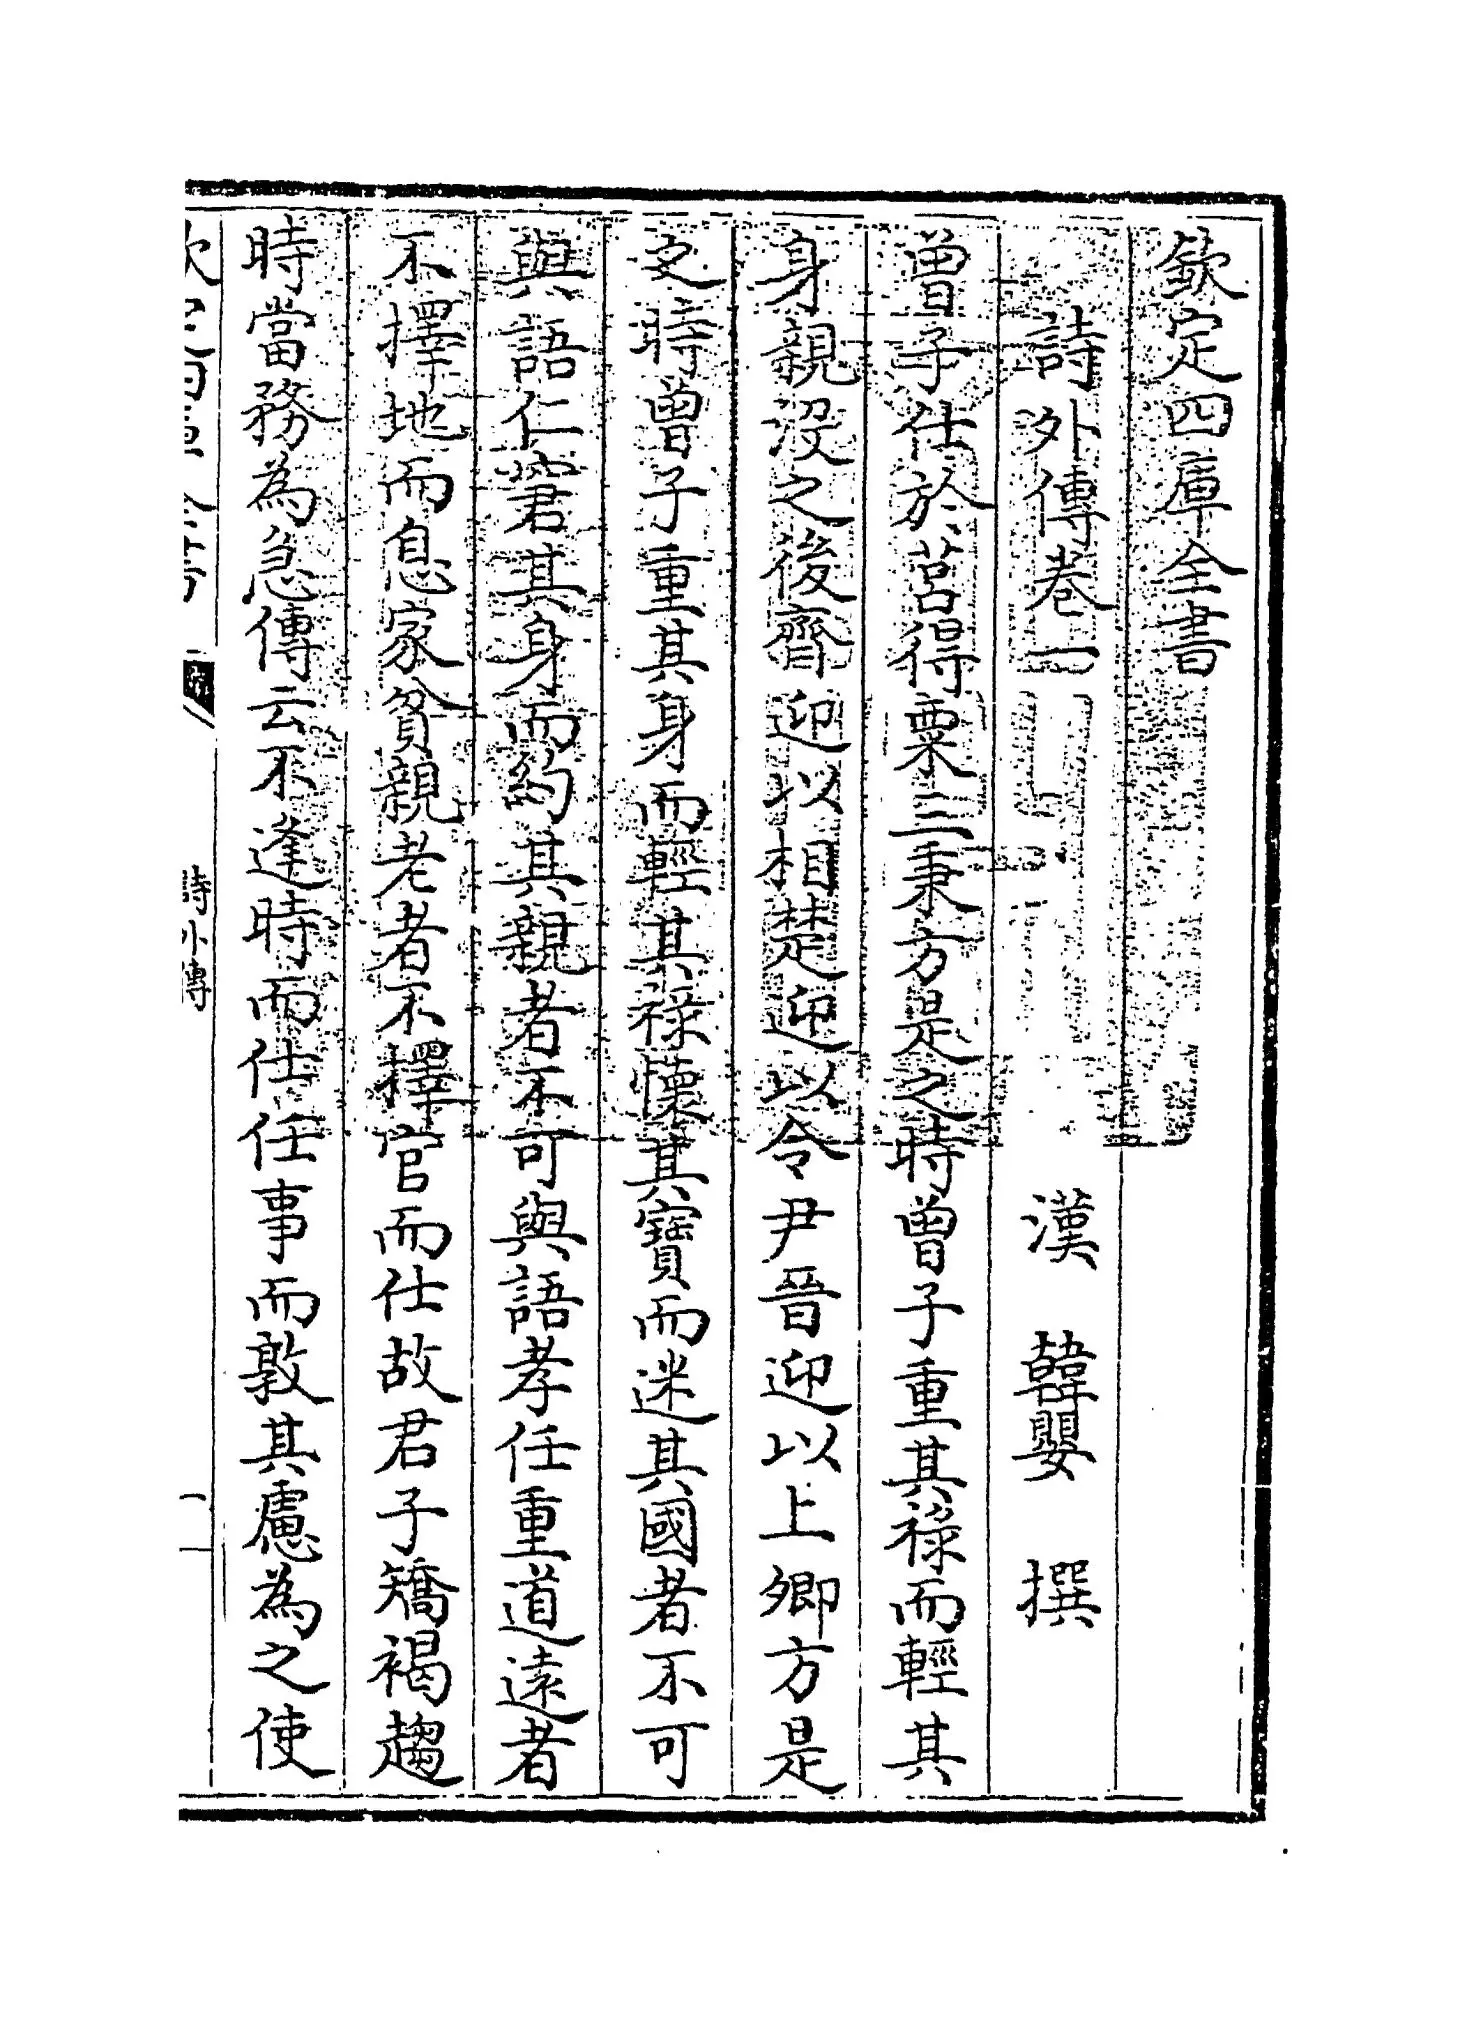 欽定四庫全書
詩外傳卷一
漢 韓嬰 撰
曾子仕於莒得粟三秉方是之時曾子重其祿而輕其
身親沒之後齊迎以相楚迎以令尹晉迎以上卿方是
之時曾子重其身而輕其祿懷其寳而迷其國者不可
與語仁窘其身而約其親者不可與語孝任重道逺者
不擇地而息家貧親老者不擇官而仕故君子矯褐趨
時當務為急傳云不逢時而仕任事而敦其慮為之使
欽定四庫全書
詩外傳
一